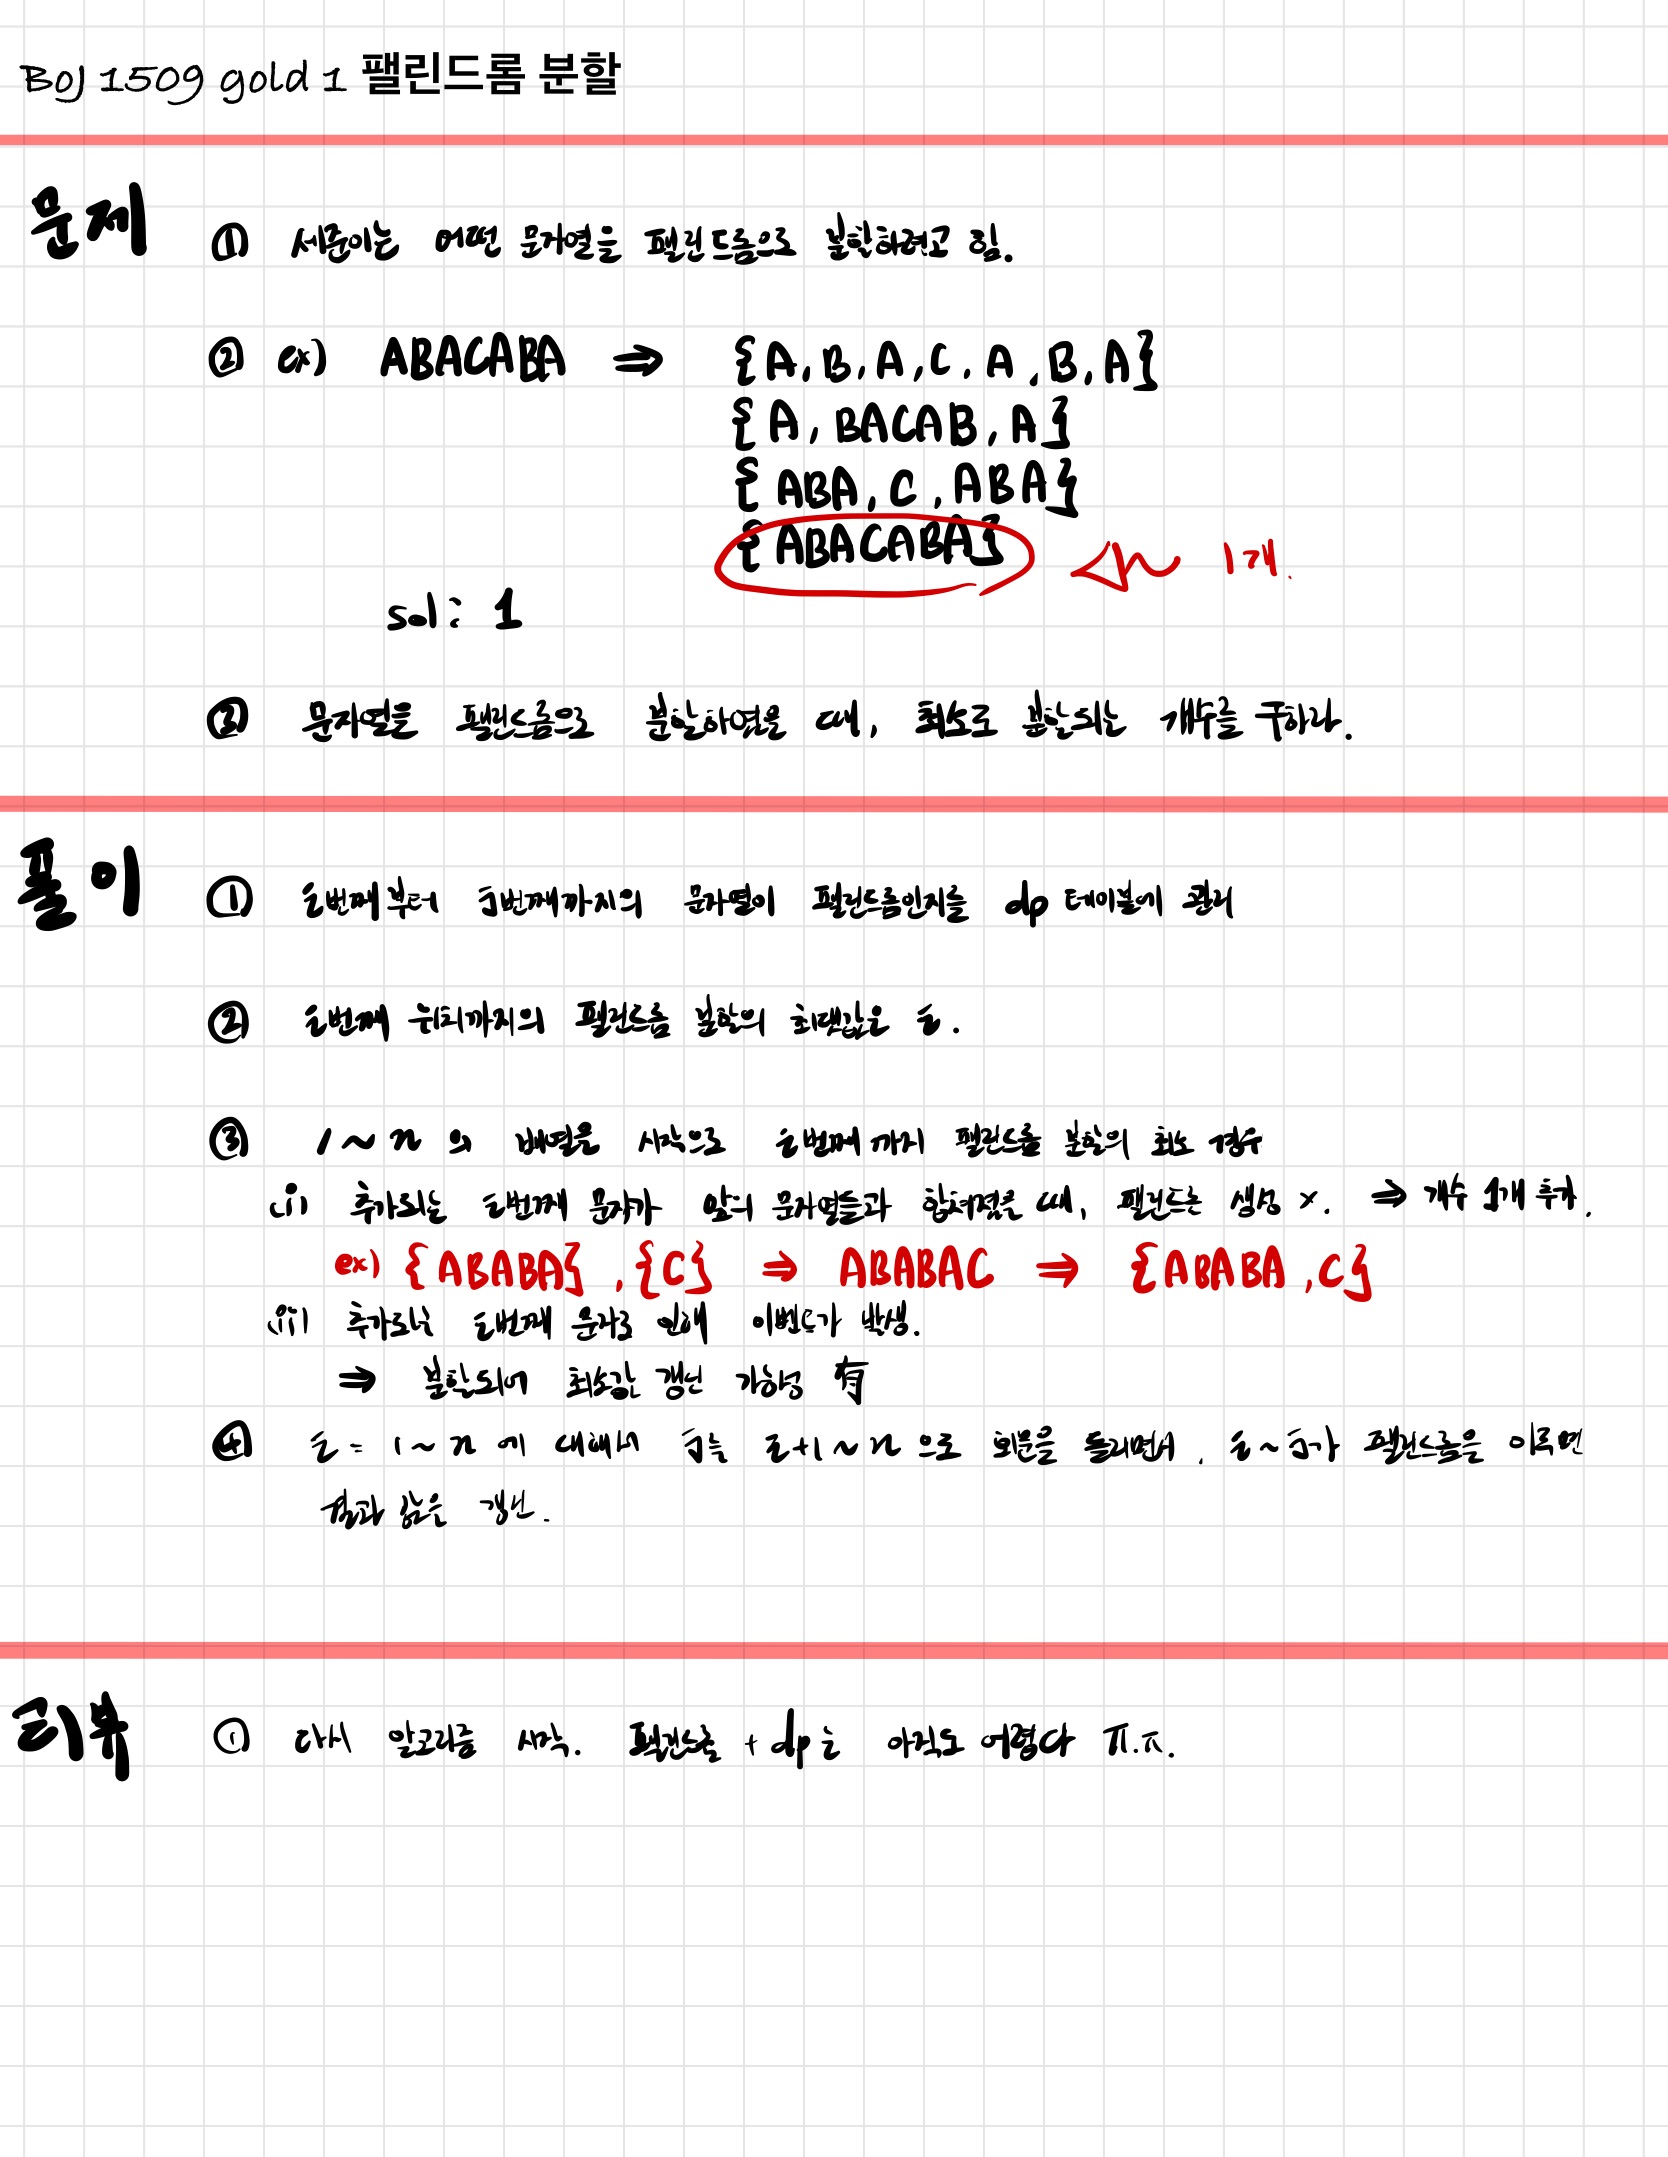 BOJ 1509 gold 1 팰린드롬 분할
문제
① 세준이는 어떤 문자열을 팰린드롬으로 분할하려고 함.
② ex) ABACABA ⇒ {A, B, A, C, A, B, A}
{A, BACAB, A}
{ABA, C, ABA}
{ABACABA} 1개.
sol: 1
③ 문자열을 팰린드롬으로 분할하였을 때, 최소로 분할되는 개수를 구하라.
풀이
① i번째부터 j번째까지의 문자열이 팰린드롬인지를 dp 테이블에 관리
② i번째 위치까지의 팰린드롬 분할의 최댓값은 i.
③ 1~n 의 배열을 시작으로 i번째 까지 팰린드롬 분할의 최소 경우
(i) 추가되는 i번째 문자가 앞의 문자열들과 합쳐졌을 때, 팰린드론 생성 x. ⇒ 개수 1개 추가.
ex) {ABABA}, {C} ⇒ ABABAC ⇒ {ABABA, C}
(ii) 추가되는 i번째 문자로 인해 이벤트가 발생.
⇒ 분할되어 최소값 갱신 가능성 有
④ i = 1~n 에 대해서 j는 i+1~n 으로 회문을 돌리면서, i~j가 팰린드롬을 이루면
결과 값은 갱신.
리뷰
① 다시 알고리즘 시작. 팰린드롬 + dp는 아직도 어렵다 ㅠ.ㅠ.